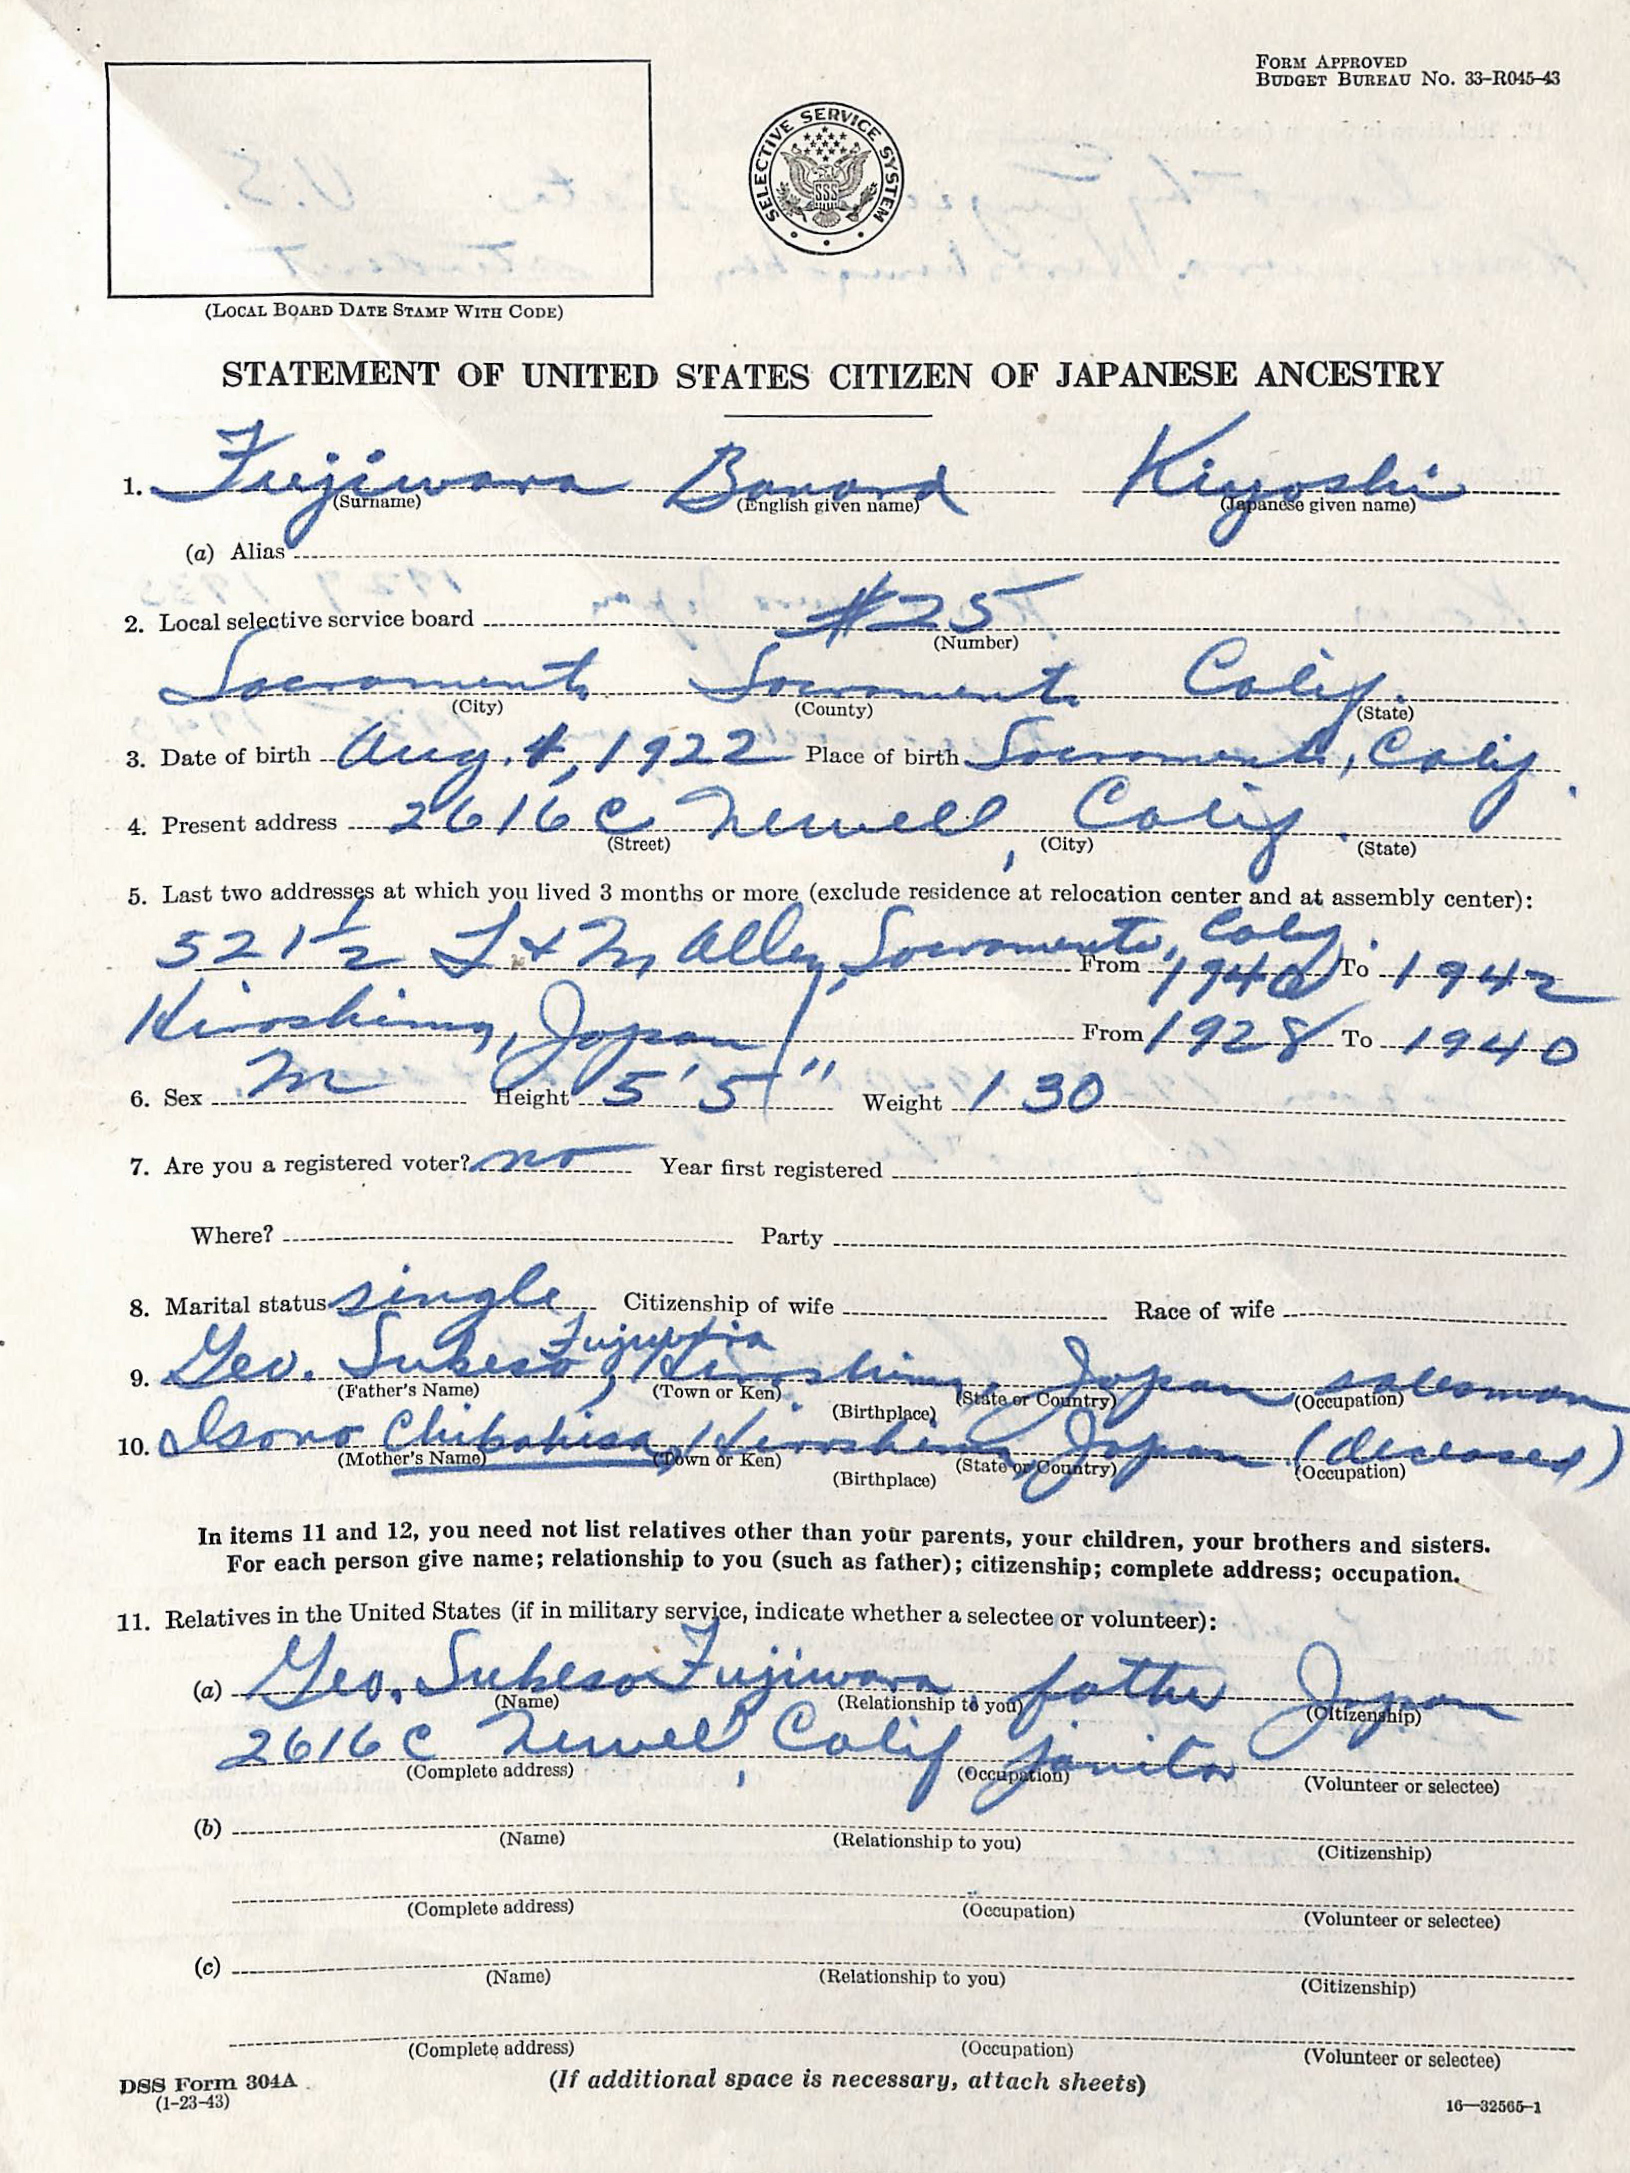 FORM APPROVED
BUDGET BUREAU NO. 33-R045-43
SELECTIVE SERVICE SYSTEM
SSS
(LOCAL BOARD DATE STAMP WITH CODE)
STATEMENT OF UNITED STATES CITIZEN OF JAPANESE ANCESTRY
1. Fujiwara Banard Kiyoshi
(Surname) (English given name) (Japanese given name)
(a) Alias
2. Local selective service board #25
(Number)
Sacramento Sacramento Calif.
(City) (County) (State)
3. Date of birth Aug. 4, 1922 Place of birth Sacramento, Calif.
4. Present address 2616 C Newell, Calif.
(Street) (City) (State)
5. Last two addresses at which you lived 3 months or more (exclude residence at relocation center and at assembly center):
521 1/2 L & M Alley, Sacramento, Calif. From 1940 To 1942
Hiroshima, Japan From 1928 To 1940
6. Sex M Height 5' 5" Weight 130
7. Are you a registered voter? no Year first registered
Where? Party
8. Marital status single Citizenship of wife Race of wife
9. Geo. Sukeso, Hiroshima, Japan, salesman
(Father's Name) (Town or Ken) (State or Country) (Occupation)
(Birthplace)
10. Isono Chikahisa, Hiroshima, Japan (deceased)
(Mother's Name) (Town or Ken) (State or Country) (Occupation)
(Birthplace)
In items 11 and 12, you need not list relatives other than your parents, your children, your brothers and sisters.
For each person give name; relationship to you (such as father); citizenship; complete address; occupation.
11. Relatives in the United States (if in military service, indicate whether a selectee or volunteer):
(a) Geo. Sukeso Fujiwara, father Japan
(Name) (Relationship to you) (Citizenship)
2616 C Newell, Calif janitor
(Complete address) (Occupation) (Volunteer or selectee)
(b)
(Name) (Relationship to you) (Citizenship)
(Complete address) (Occupation) (Volunteer or selectee)
(c)
(Name) (Relationship to you) (Citizenship)
(Complete address) (Occupation) (Volunteer or selectee)
DSS Form 304A
(1-23-43)
(If additional space is necessary, attach sheets)
16—32565-1